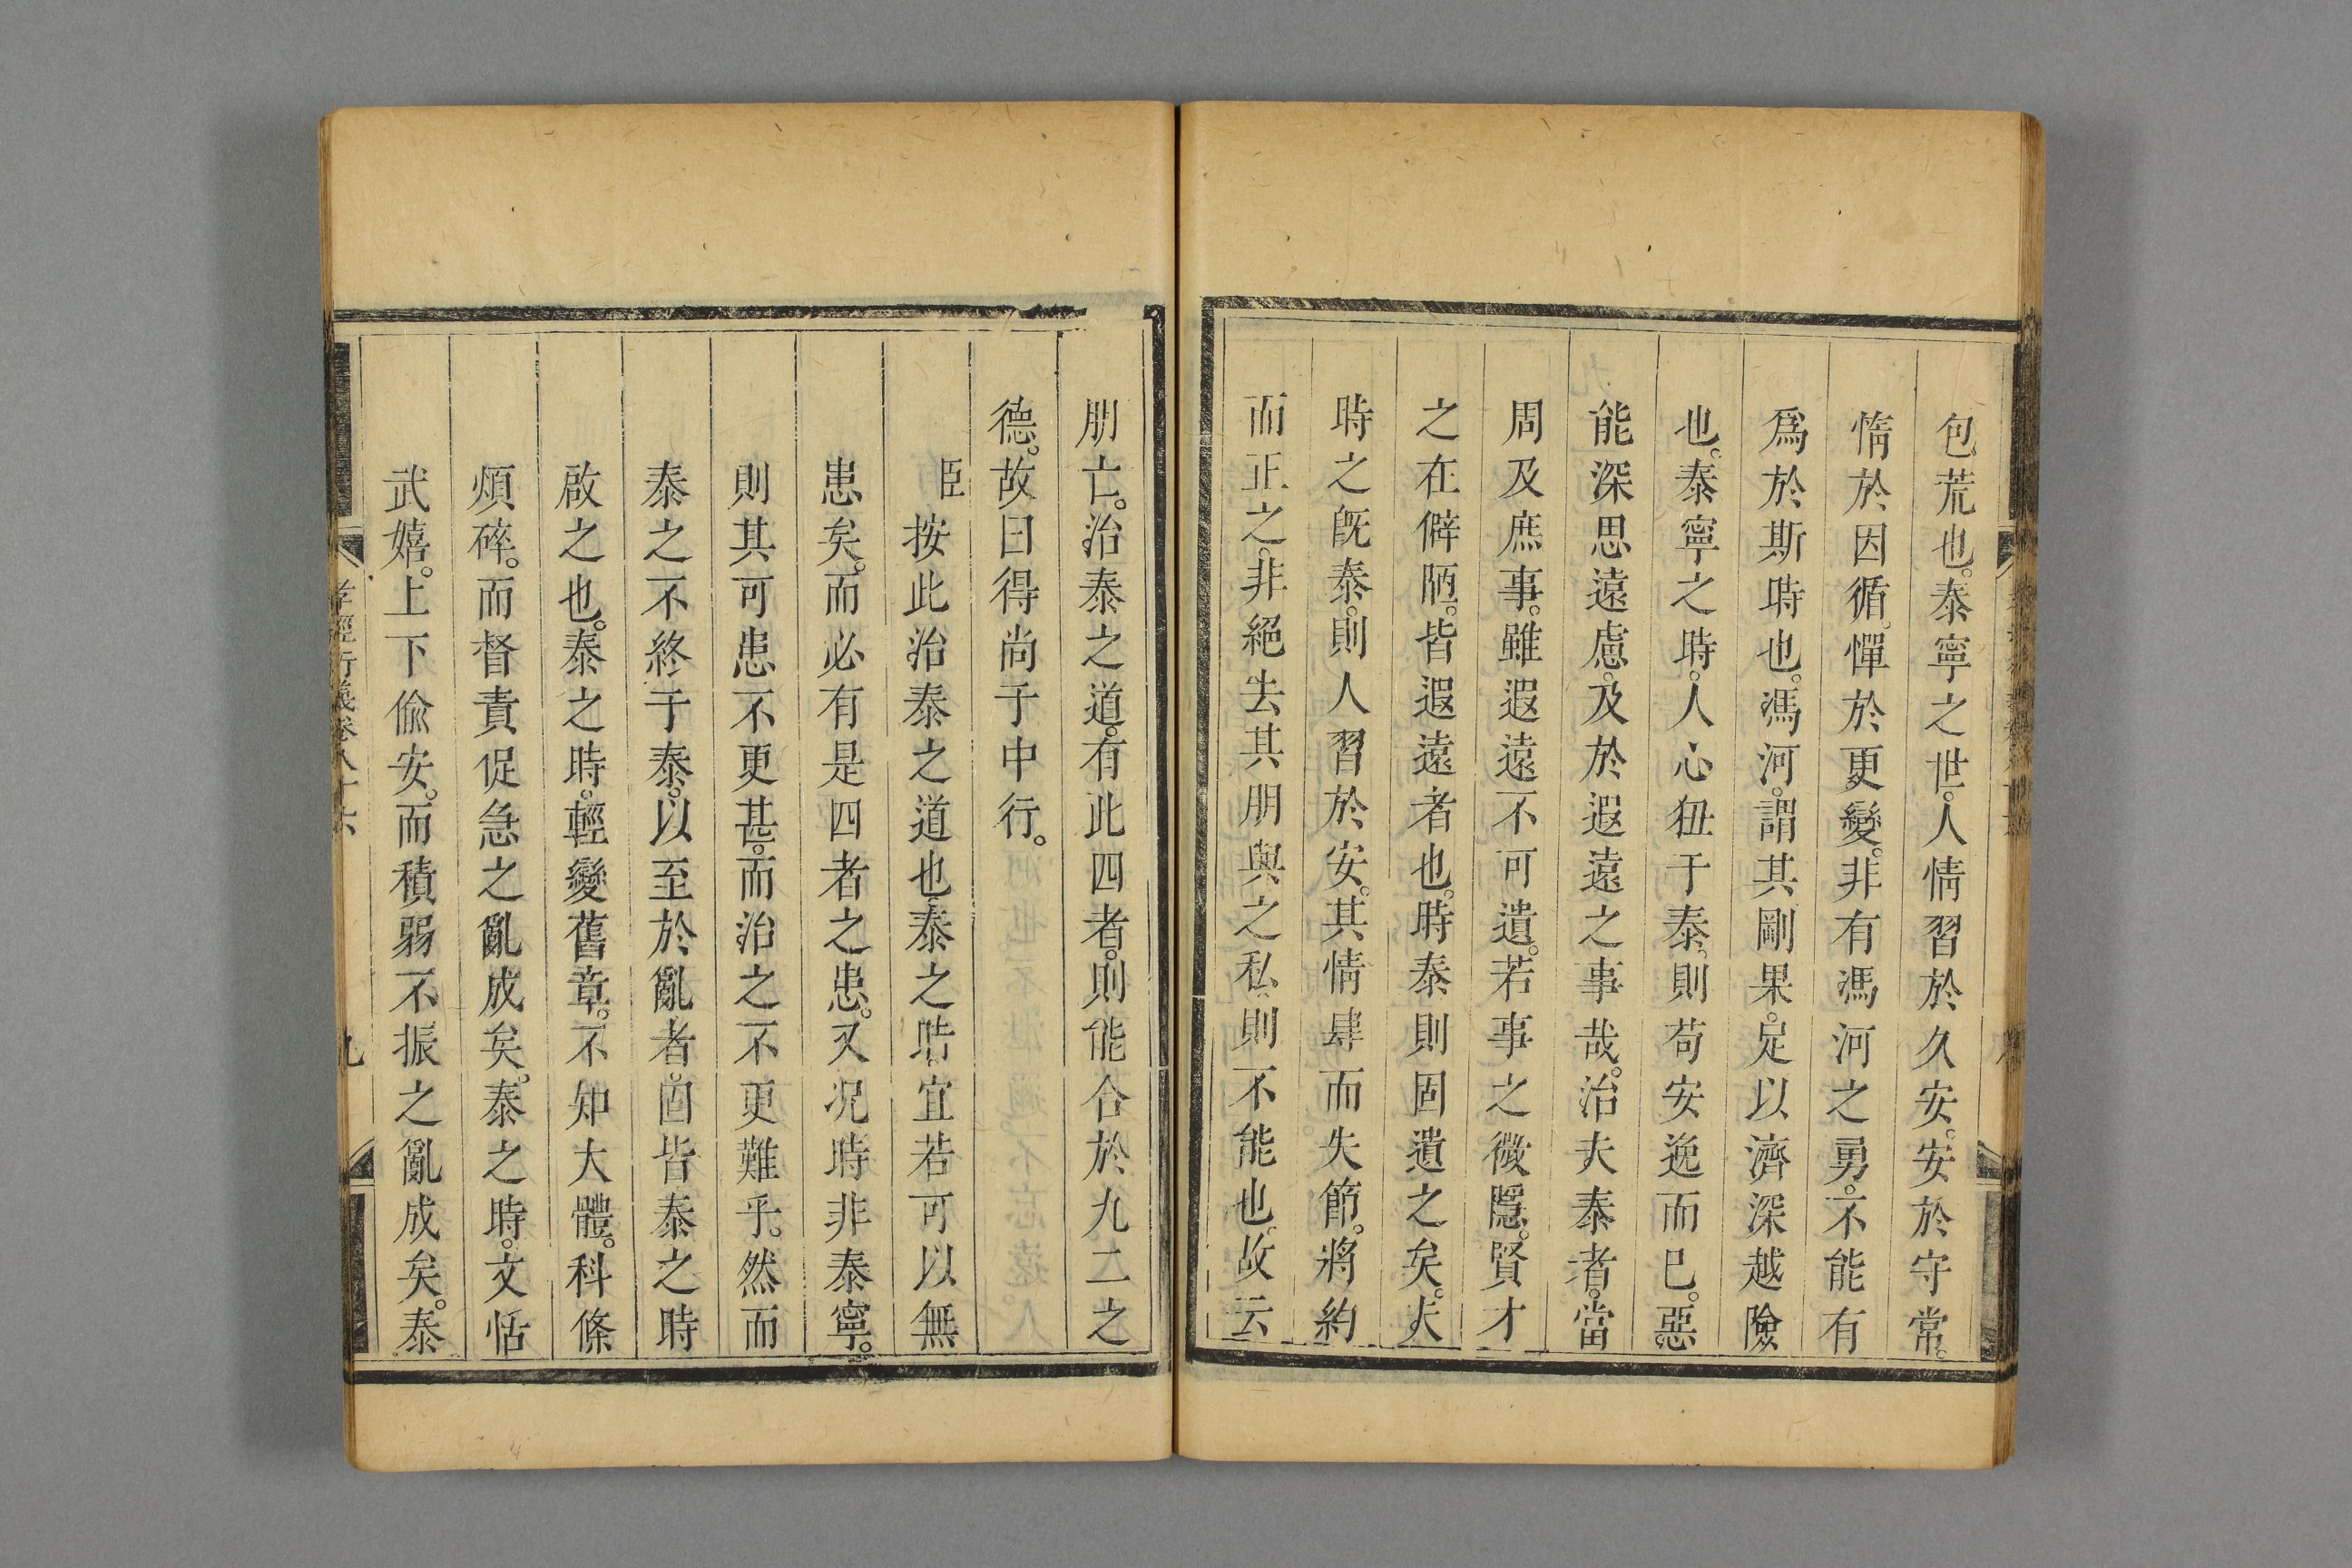 包荒也。泰寧之世。人情習於久安。安於守常。
惰於因循。憚於更變。非有馮河之勇。不能有
爲於斯時也。馮河。謂其剛果。足以濟深越險
也。泰寧之時。人心狃于泰。則苟安逸而已。惡
能深思遠慮。及於遐遠之事哉。治夫泰者。當
周及庶事。雖遐遠不可遺。若事之微隱。賢才
之在僻陋。皆遐遠者也。時泰則固遺之矣。夫
時之旣泰。則人習於安。其情肆而失節。將約
而正之。非絕去其朋與之私。則不能也。故云
朋亡。治泰之道。有此四者。則能合於九二之
德。故曰得尚于中行。
臣按此治泰之道也。泰之時宜若可以無
患矣。而必有是四者之患。又况時非泰寧。
則其可患不更甚。而治之不更難乎。然而
泰之不終于泰。以至於亂者。卣皆泰之時
啟之也。泰之時。輕變舊章。不知大體。科條
煩碎。而督責促急之亂成矣。泰之時。文恬
武嬉。上下偸安。而積弱不振之亂成矣。泰
孝經衍義卷八十六
九